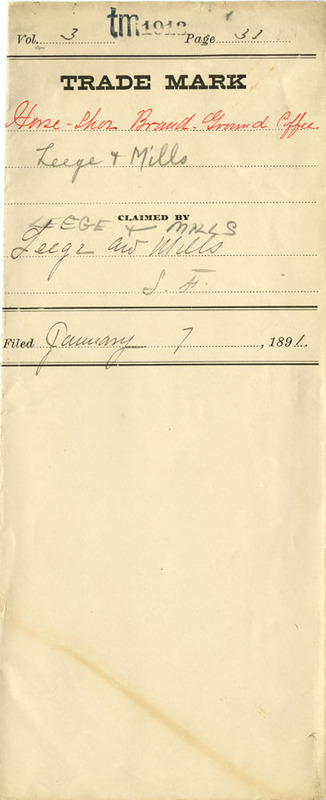 Vol. 3 tm1913 Page 31
TRADE MARK
Horse-Shoe Brand Ground Coffee
Leege & Mills
CLAIMED BY
LEEGE & MILLS
Leege and Mills
S. F.
Filed January 7, 1891.